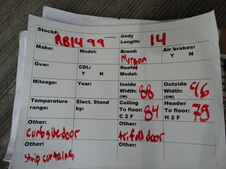 Stock#: RB1499 Body Length: 14
Make: Model: Brand: Morgan Air brakes: Y N
Gvw: CDL: Y N Reefer Model:
Mileage: Year: Inside Width: 88 (IW) Outside Width: 96 (OW)
Temperature range: Elect. Stand by: Ceiling To floor: 84 C 2 F Header To floor: 79 H 2 F
Other: Curbside door Other: trifold door
Other: strip curtains Other: